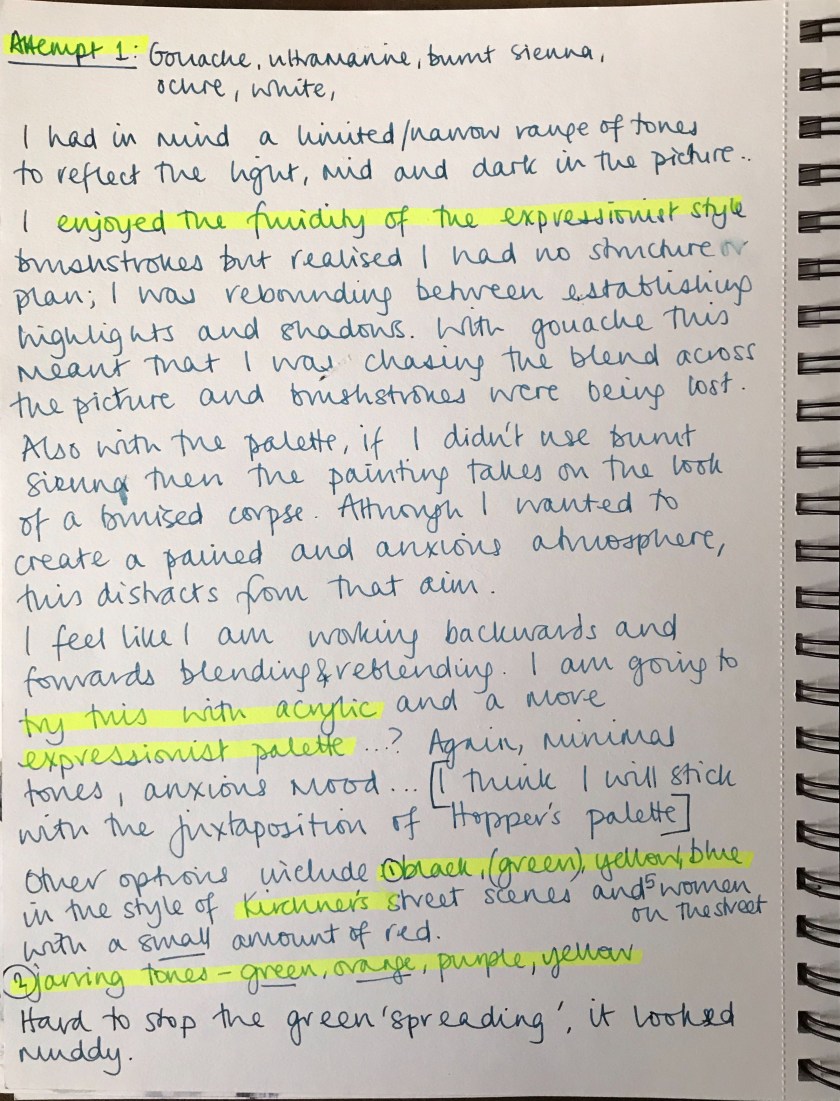 Attempt 1: Gouache, ultramarine, burnt sienna,
ochre, white,
I had in mind a limited/narrow range of tones
to reflect the light, mid and dark in the picture..
I enjoyed the fluidity of the expressionist style
brushstrokes but realised I had no structure or
plan; I was rebounding between establishing
highlights and shadows. With gouache this
meant that I was chasing the blend across
the picture and brushstrokes were being lost.
Also with the palette, if I didn't use burnt
sienna then the painting takes on the look
of a bruised corpse. Although I wanted to
create a pained and anxious atmosphere,
this distracts from that aim.
I feel like I am working backwards and
forwards blending & reblending. I am going to
try this with acrylic and a more
expressionist palette ...? Again, minimal
tones, anxious mood... [I think I will stick
with the juxtaposition of Hopper's palette]
Other options include ① black, (green), yellow, blue
in the style of Kirchner's street scenes and 5 women
on the street
with a small amount of red.
② jarring tones - green, orange, purple, yellow
Hard to stop the green 'spreading', it looked
muddy.